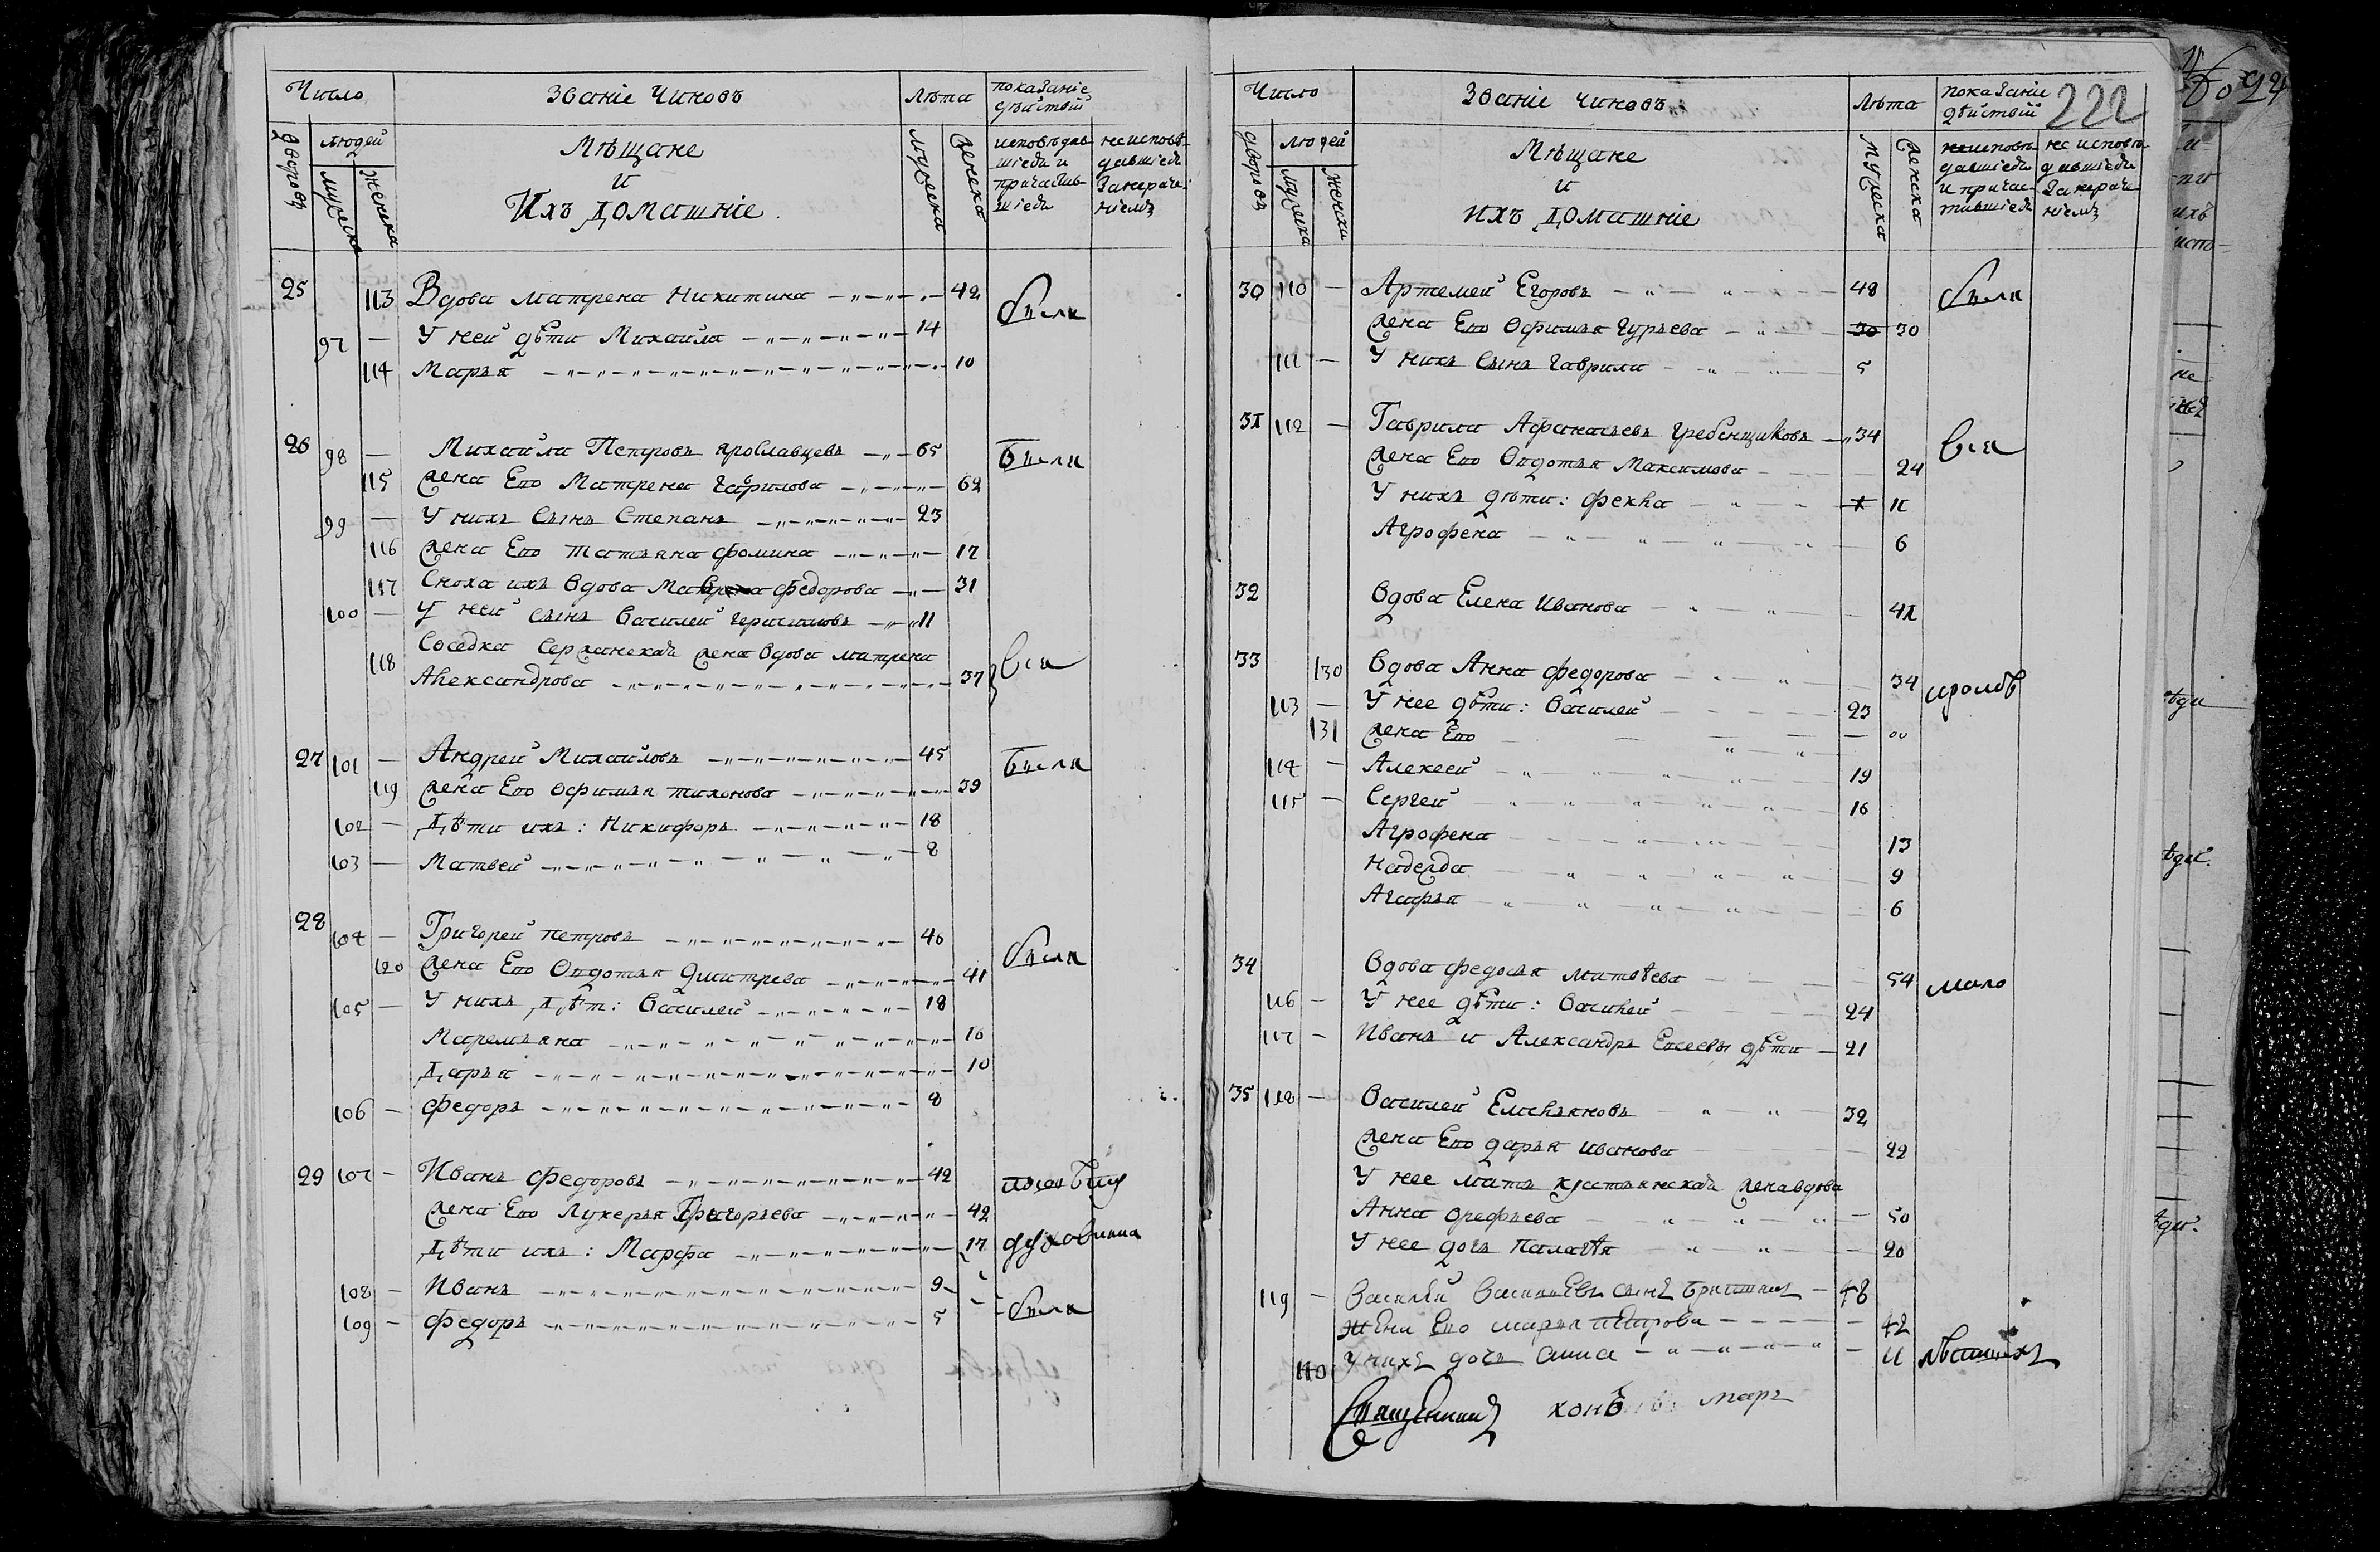 Число Званіе Чиновъ Лѣта показаніе дѣйствій
дворовъ людей мужеска женска Мѣщане и Ихъ Домашніе мужеска женска исповѣдавшіеся и причастившіеся неисповѣдавшіеся
25 113 Вдова Матрена Никитина 42 были
97 У ней дѣти Михайла 14
114 Марья 10
26 98 Михайла Петровъ Ярославцевъ 65 были
115 жена Его Матрена Гаврилова 62
99 У нихъ Сынъ Степанъ 23
116 жена Его Татьяна Фомина 17
117 Сноха ихъ Вдова Федорова 31
100 У ней сынъ Василей Герасимовъ 11
118 Соседка жена Вдова Матрена
Александрова 37 вся
27 101 Андрей Михайловъ 45 были
119 жена Его Офимья Тихонова 39
102 Дѣти ихъ: Никифоръ 18
103 Матвей 8
28 104 Григорей Петровъ 46 были
120 жена Его Овдотья Дмитрева 41
105 У нихъ Дѣт: Василей 18
Маремьяна 16
Дарья 10
106 Федоръ 8
29 107 Иванъ Федоровъ 42
жена Его Лукерья Григорьева 42
Дѣти ихъ: Марфа 17
108 Иванъ 9
109 Федоръ 5 были
222
Число Званіе чиновъ Лѣта показаніе дѣйствій
дворовъ людей мужеска женска Мѣщане и ихъ Домашніе мужеска женска исповѣдавшіеся и причастившіеся не исповѣдавшіеся
30 110 Артемей Егоровъ 48 были
жена Его Офимья Гурьева 30 30
111 У нихъ Сынъ Гаврила 5
31 112 Гаврила Афанасьевъ Гребенщиковъ 34 вся
жена Его Овдотья Максимова 24
У нихъ дѣти: Фекла 11
Агрофена 6
32 Вдова Елена Иванова 41
33 130 Вдова Анна Федорова 34
113 У нее дѣти: Василей 23
131 жена Его
114 Алексей 19
115 Сергей 16
Агрофена 13
Надежда 9
Агафья 6
34 Вдова Федосья Матвѣева 54
116 У нее дѣти: Василей 24
117 Иванъ и Александръ дѣти 21
35 118 Василей Емельяновъ 32
жена Его Дарья Иванова 22
У нее мать крестьянская жена вдова
Анна Орефьева 50
У нее дочь Палагѣя 20
119 Василий Васильевъ сынъ 48
Жена Его Марья 42
110 У нихъ дочь Анна 11
Священникъ